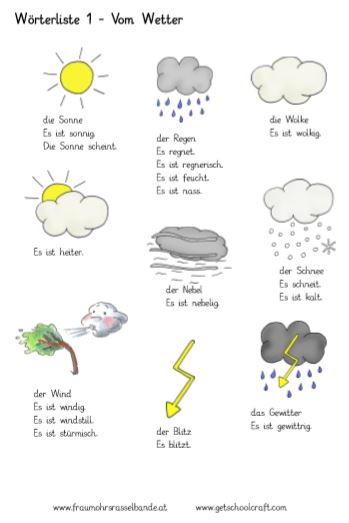 Wörterliste 1 - Vom Wetter
die Sonne
Es ist sonnig.
Die Sonne scheint.
der Regen
Es regnet.
Es ist regnerisch.
Es ist feucht.
Es ist nass.
die Wolke
Es ist wolkig.
Es ist heiter.
der Nebel
Es ist nebelig.
der Schnee
Es schneit.
Es ist kalt.
der Wind
Es ist windig.
Es ist windstill.
Es ist stürmisch.
der Blitz
Es blitzt.
das Gewitter
Es ist gewittrig.
www.fraumohrsrasselbande.at www.getschoolcraft.com